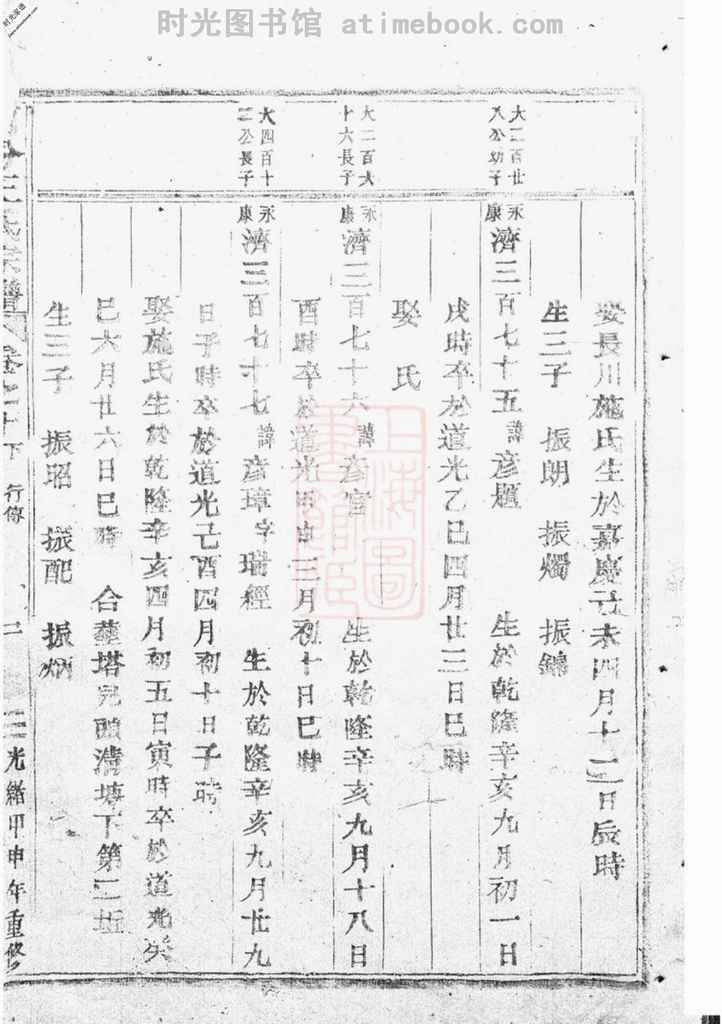 时光图书馆 - atimebook.com
时光家谱
娶長川施氏生於嘉慶己未四月十二日辰時
生三子 振朗 振燭 振鏽
大二百廿八公幼子
永康
濟三百七十五諱彥題 生於乾隆辛亥九月初一日
戌時卒於道光乙巳四月廿三日巳時
娶氏
大二百六十六長子
永康
濟三百七十六諱彥官 生於乾隆辛亥九月十八日
酉時卒於道光甲申三月初十日巳時
大四百十二公長子
永康
濟三百七十七諱彥璋字瑞經 生於乾隆辛亥九月廿九
日子時卒於道光己酉四月初十日子時
娶施氏生於乾隆辛亥四月初五日寅時卒於道光癸
巳六月廿六日巳時 合葬塔兒頭溝塘下第二坵
生三子 振昭 振配 振炳
王氏宗譜 卷之十下 行傳
光緒甲申年重修
上海圖書館藏